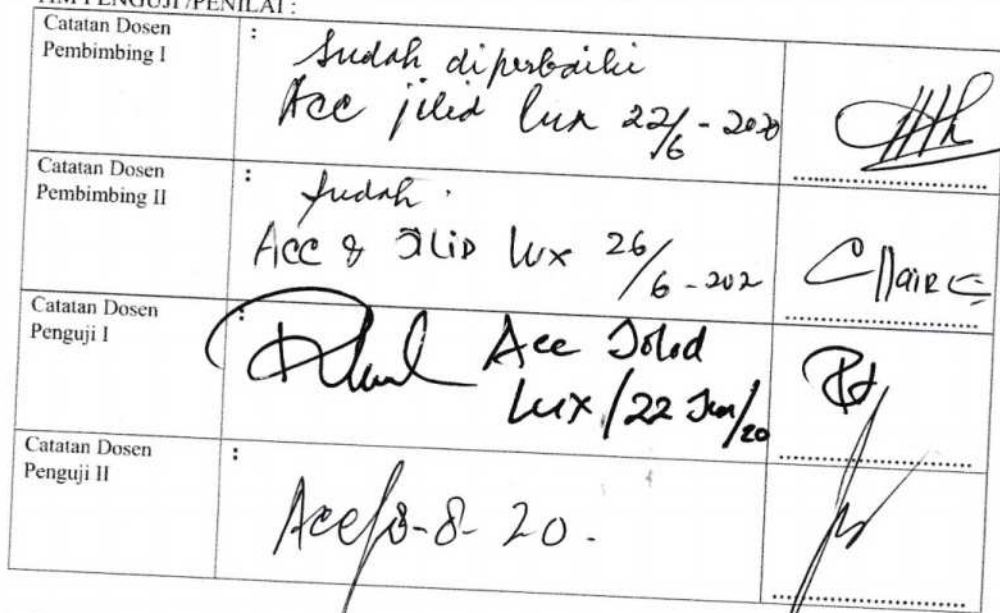 TIM PENGUJI /PENILAI :
Catatan Dosen
Pembimbing I
:
Sudah diperbaiki
Acc jilid lux 22/6 - 2020
Catatan Dosen
Pembimbing II
:
Sudah.
Acc & Jilid lux 26/6 - 202
Claire
Catatan Dosen
Penguji I
:
Acc Jilid
Lux / 22 Jun/20
Catatan Dosen
Penguji II
:
Acc
-8-20.